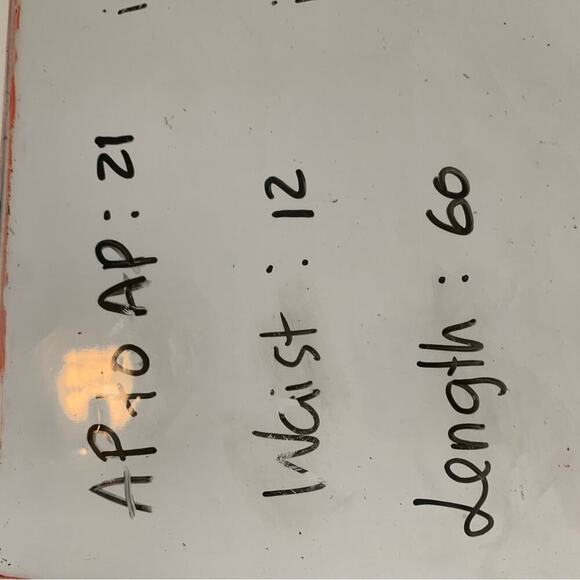 AP to AP : 21
Waist : 12
Length : 60